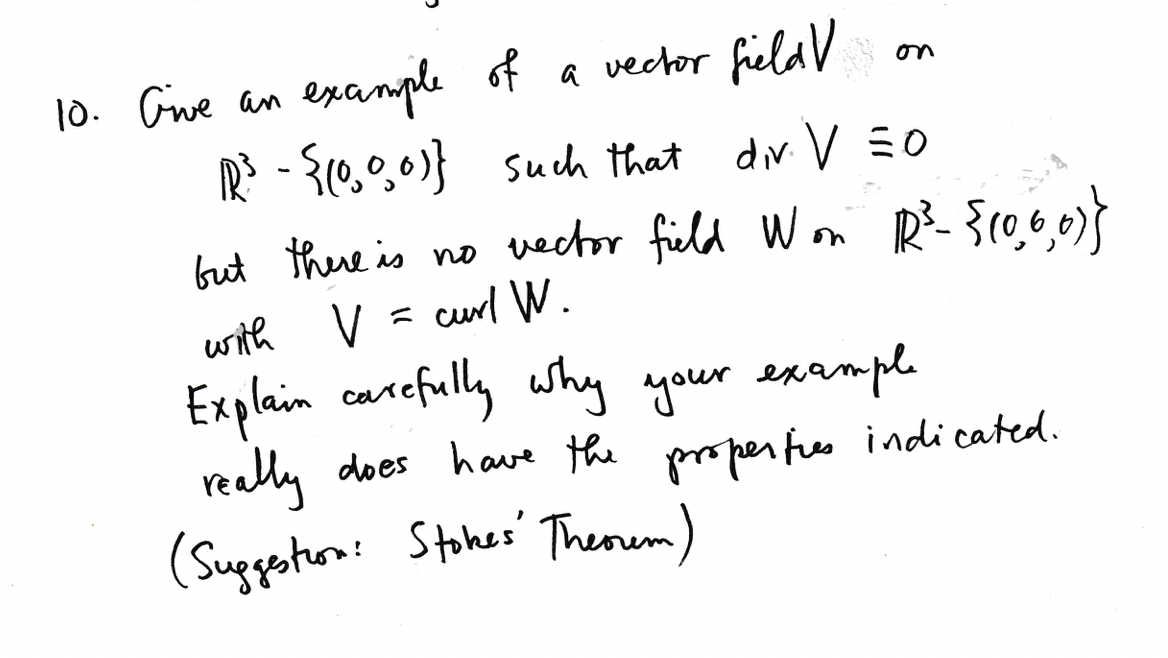 10. Give an example of a vector field V on
ℝ³ - {(0,0,0)} such that div V ≡ 0
but there is no vector field W on ℝ³ - {(0,0,0)}
with V = curl W.
Explain carefully why your example
really does have the properties indicated.
(Suggestion: Stokes' Theorem)